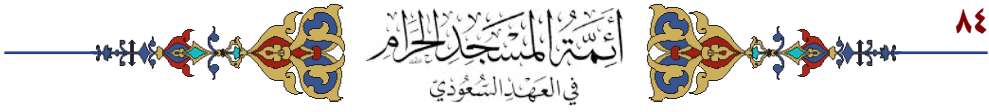 ٨٤
أَئِمَّةُ المَسْجِدِ الحَرَامِ
في العَهْدِ السُّعُودِيّ